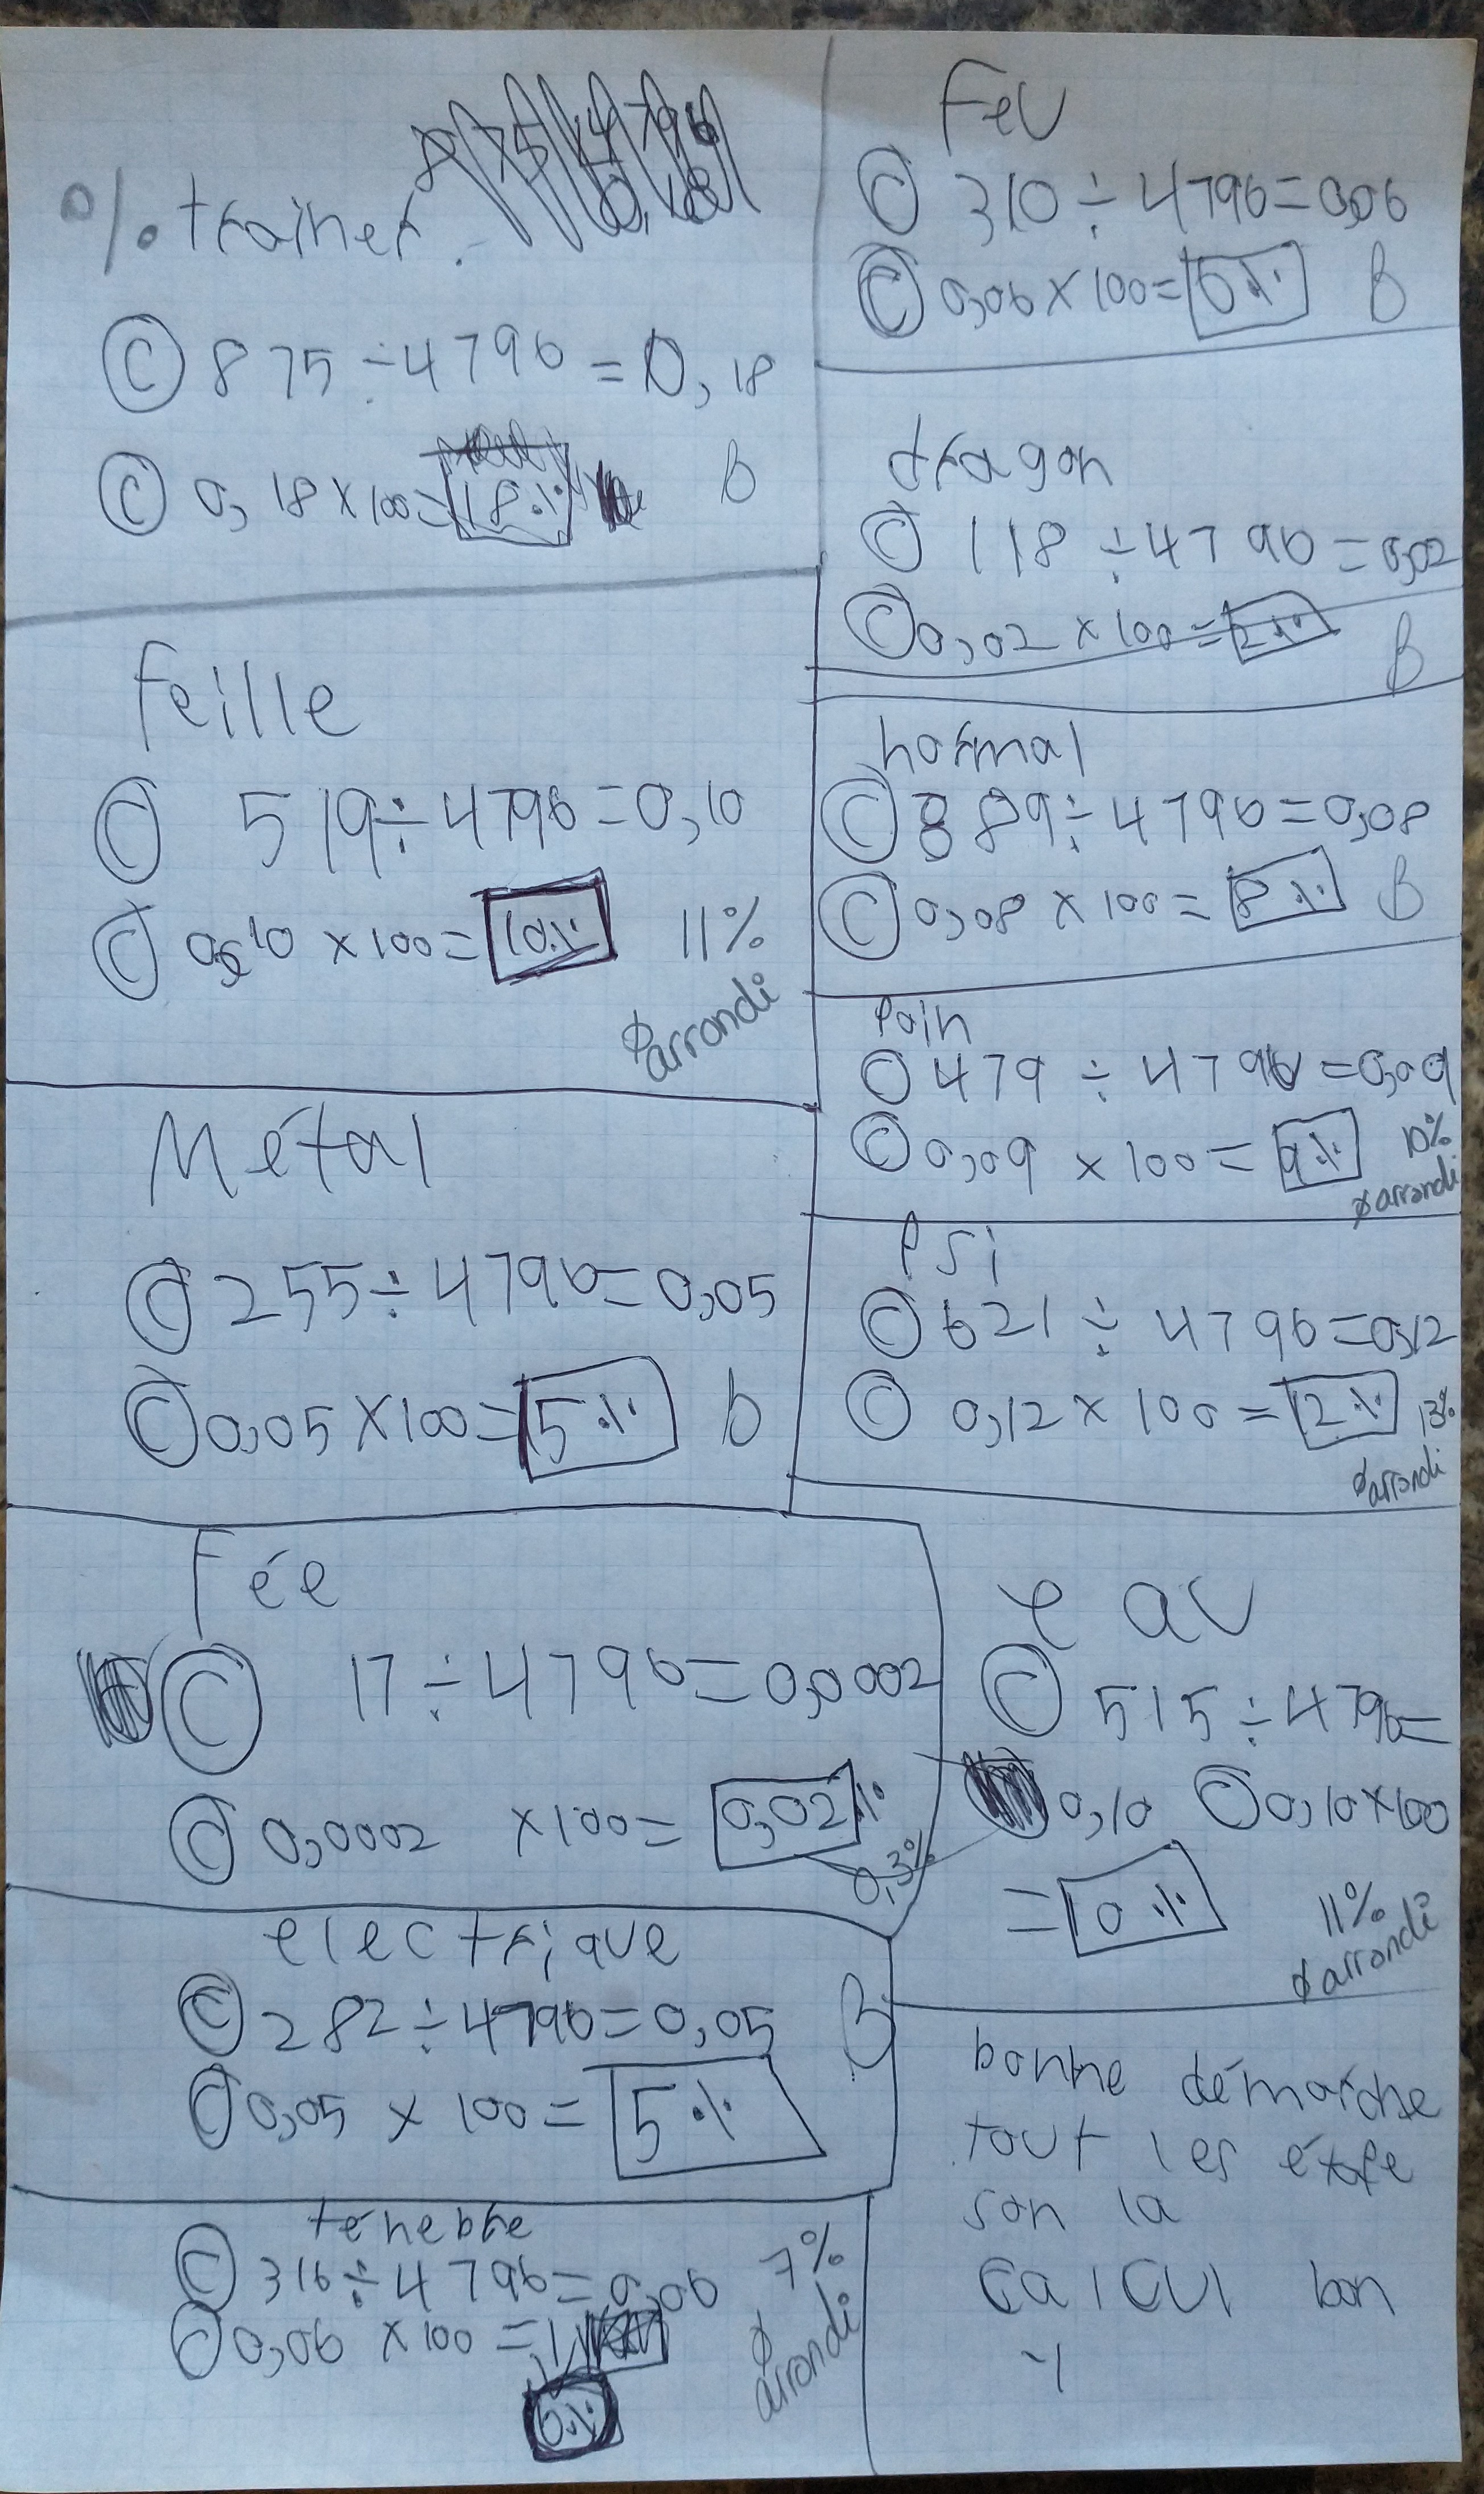 % trainer.
C 875 ÷ 4796 = 0,18
C 0,18 x 100 = 18 % B
feille
C 519 ÷ 4796 = 0,10
C 0,10 x 100 = 10 % 11%
∅ arrondi
Métal
C 255 ÷ 4796 = 0,05
C 0,05 x 100 = 5 % B
Fée
C 17 ÷ 4796 = 0,0002
C 0,0002 x 100 = 0,02 %
0,3%
electrique
C 282 ÷ 4796 = 0,05 B
C 0,05 x 100 = 5 %
ténebre
C 316 ÷ 4796 = 0,06 7%
C 0,06 x 100 =
6 %
∅ arrondi
Feu
C 310 ÷ 4796 = 0,06
C 0,06 x 100 = 6 % B
dragon
C 118 ÷ 4796 = 0,02
C 0,02 x 100 = 2 % B
normal
C 389 ÷ 4796 = 0,08
C 0,08 x 100 = 8 % B
Poin
C 479 ÷ 4796 = 0,09
C 0,09 x 100 = 9 % 10%
∅ arrondi
Psi
C 621 ÷ 4796 = 0,12
C 0,12 x 100 = 12 % 13%
∅ arrondi
eau
C 515 ÷ 4796 =
0,10 C 0,10 x 100
= 10 % 11%
∅ arrondi
bonne démarche
tout les étape
son la
calcul bon
-1